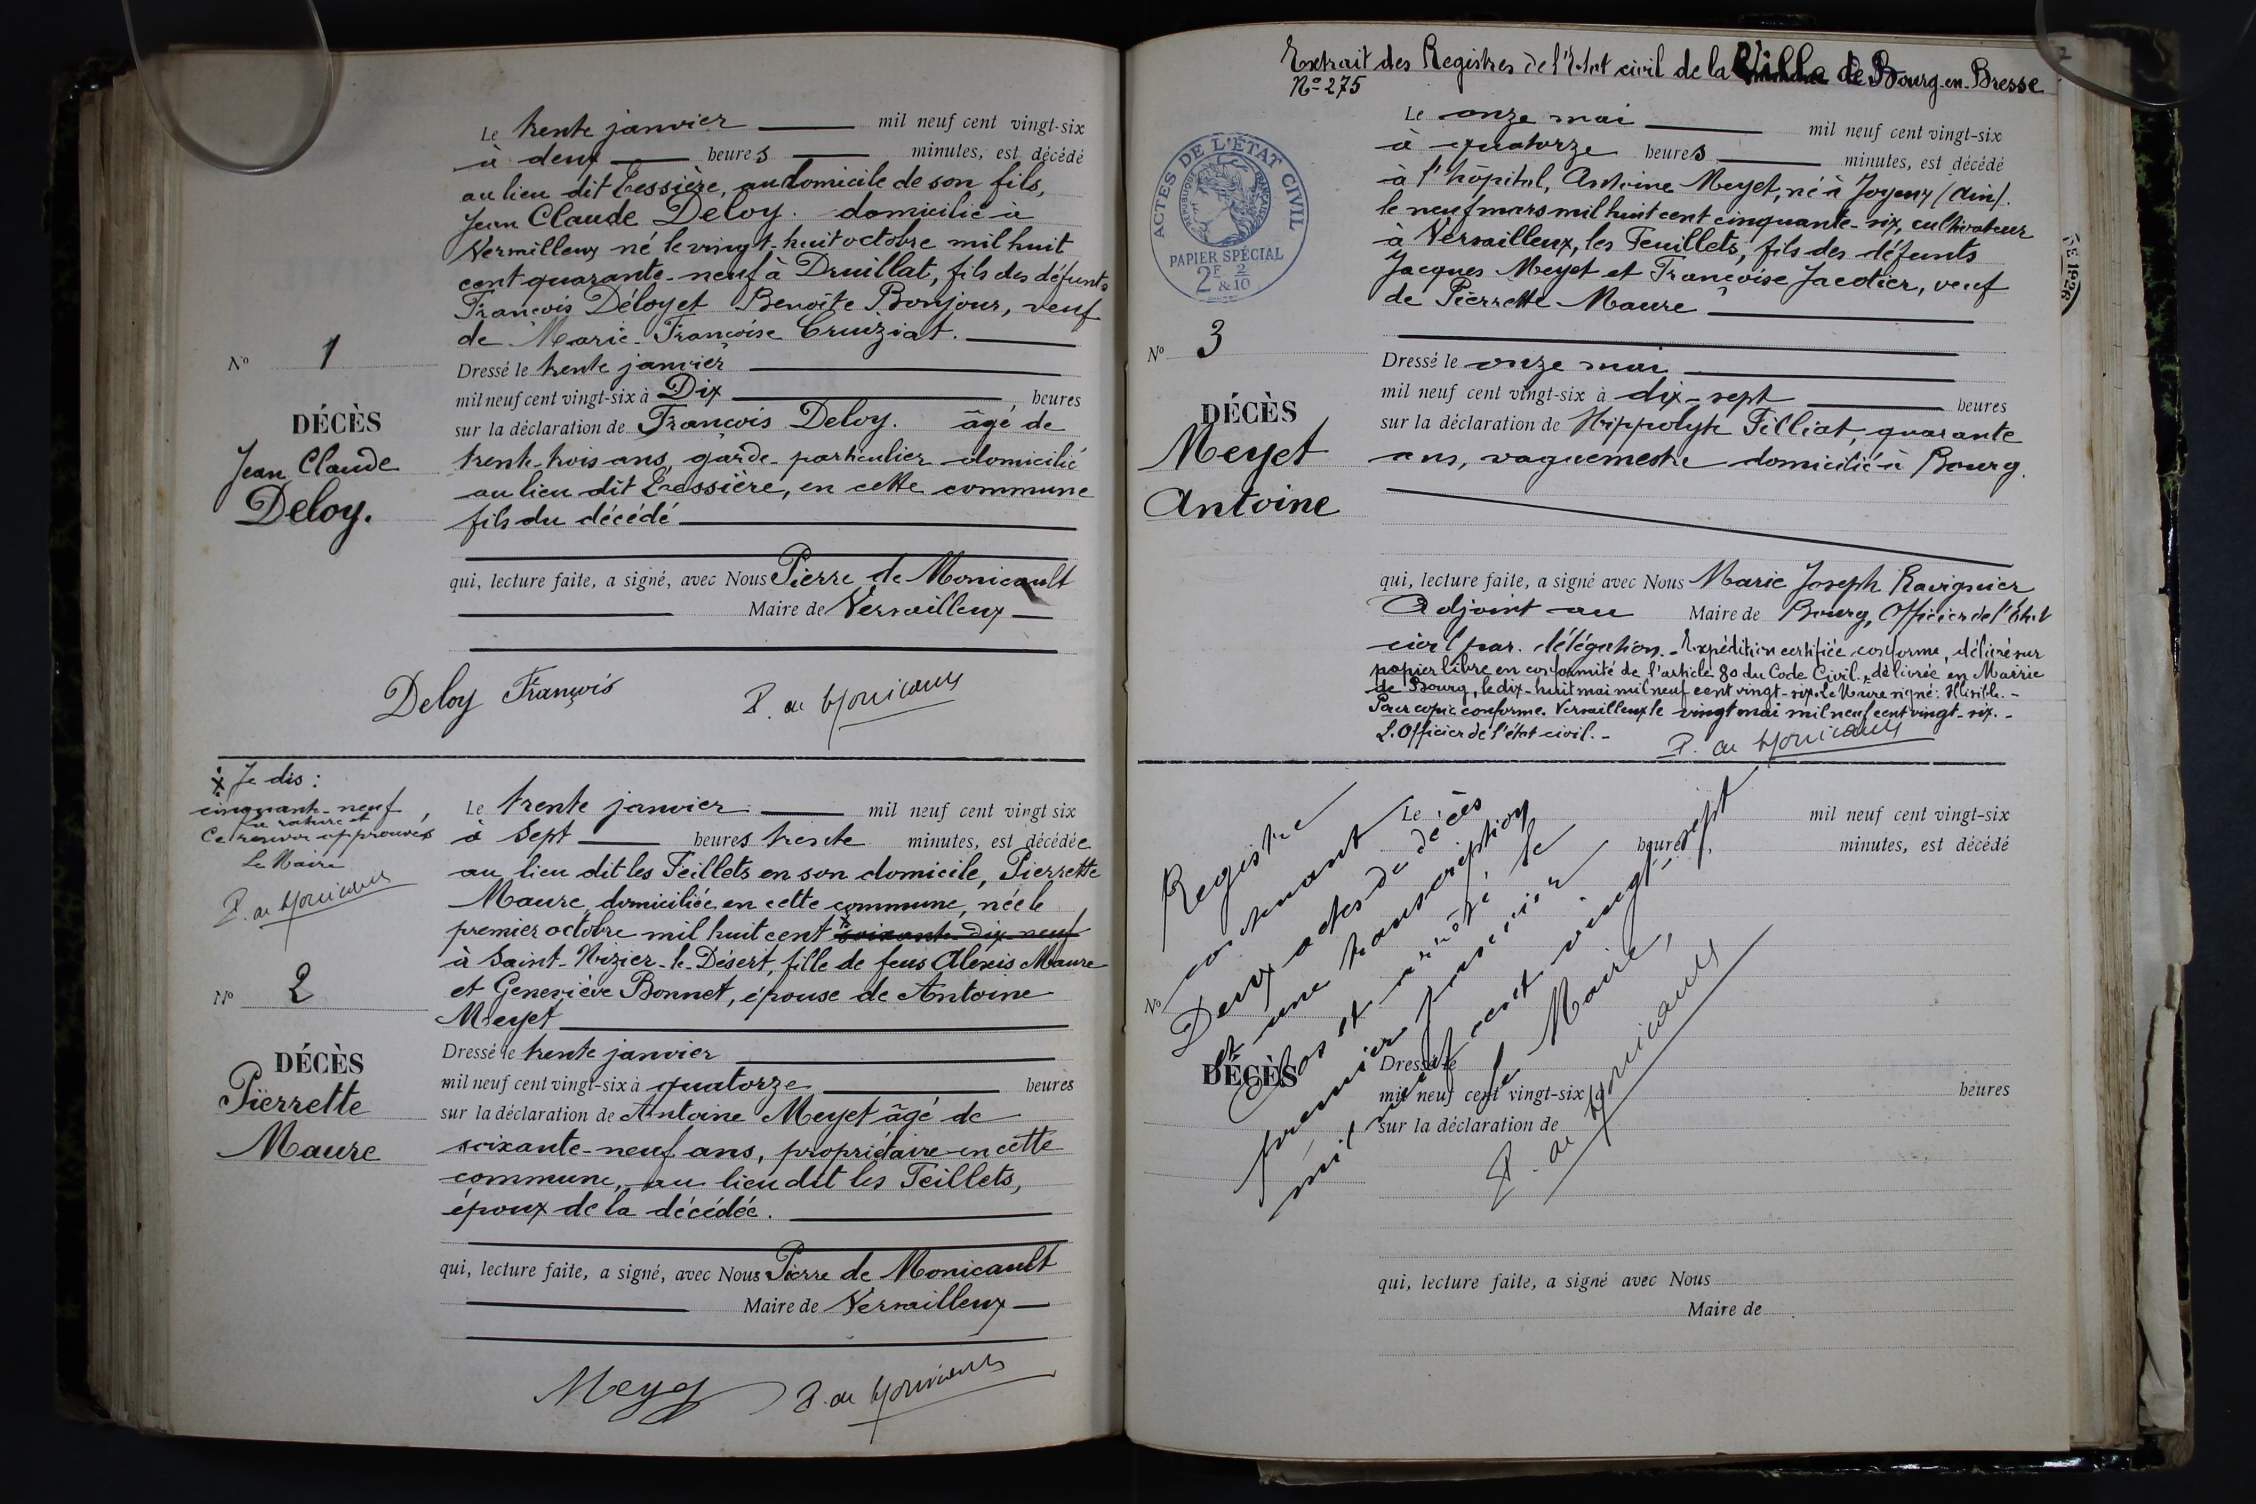 Le trente janvier mil neuf cent vingt-six
à deux heures minutes, est décédé
au lieu dit Tessière, au domicile de son fils,
Jean Claude Deloy. domicilié à
Versailleux né le vingt-huit octobre mil huit
cent quarante-neuf à Druillat, fils des défunts
François Déloy et Benoîte Bonjour, veuf
de Marie-Françoise Cruiziat.
Nº 1
Dressé le trente janvier
mil neuf cent vingt-six à Dix heures
DÉCÈS
sur la déclaration de François Deloy. âgé de
Jean Claude
trente-trois ans, garde-particulier domicilié
au lieu dit Tessière, en cette commune
Deloy.
fils du décédé
qui, lecture faite, a signé, avec Nous Pierre de Monicault
Maire de Versailleux
Deloy François
P. de Monicault
x Je dis :
cinquante-neuf
Ce renvoi approuvés
Le Maire
P. de Monicault
Le trente janvier mil neuf cent vingt six
à Sept heures trente minutes, est décédée
au lieu dit les Feillets en son domicile, Pierrette
Maure, domiciliée en cette commune, née le
premier octobre mil huit cent x soixante-dix-neuf
à Saint-Nizier-le-Désert, fille de feus Alexis Maure
Nº 2
et Geneviève Bonnet, épouse de Antoine
Meyet
Dressé le trente janvier
DÉCÈS
mil neuf cent vingt-six à quatorze heures
Pierrette
sur la déclaration de Antoine Meyet âgé de
Maure
soixante-neuf ans, propriétaire en cette
commune, au lieu dit les Feillets,
époux de la décédée.
qui, lecture faite, a signé, avec Nous Pierre de Monicault
Maire de Versailleux
P. de Monicault
Extrait des Registres de l'Etat civil de la Ville de Bourg-en-Bresse
Nº 275
ACTES DE L'ÉTAT CIVIL
RÉPUBLIQUE FRANÇAISE
PAPIER SPÉCIAL
2F & 2/10
DE 1926
Le onze mai mil neuf cent vingt-six
à quatorze heures minutes, est décédé
à l'hôpital, Antoine Meyet, né à Joyeux (Ain).
le neuf mars mil huit cent cinquante-six, cultivateur
à Versailleux, les Feuillets, fils des défunts
Jacques Meyet et Françoise Jacotier, veuf
de Pierrette Maure
Nº 3
Dressé le onze mai
mil neuf cent vingt-six à dix-sept heures
DÉCÈS
sur la déclaration de Hippolyte Filliat, quarante
Meyet
ans, vaguemestre domicilié à Bourg.
Antoine
qui, lecture faite, a signé avec Nous Marie Joseph Ravignier
Adjoint au Maire de Bourg, Officier de l'Etat
civil par délégation. - Expédition certifiée conforme, délivré sur
papier libre en conformité de l'article 80 du Code Civil. délivrée en Mairie
de Bourg, le dix-huit mai mil neuf cent vingt-six. Le Maire signé: Illisible. -
Pour copie conforme. Versailleux le vingt mai mil neuf cent vingt-six. -
L'Officier de l'état civil. -
P. de Monicault
Le mil neuf cent vingt-six
heures minutes, est décédé
Nº
DÉCÈS
Dressé le
mil neuf cent vingt-six à heures
sur la déclaration de
qui, lecture faite, a signé avec Nous
Maire de
Registre
contenant
Deux actes de décès
et une transcription
Clos et arrêté le
premier janvier
mil neuf cent vingt-sept
Le Maire,
P. de Monicault